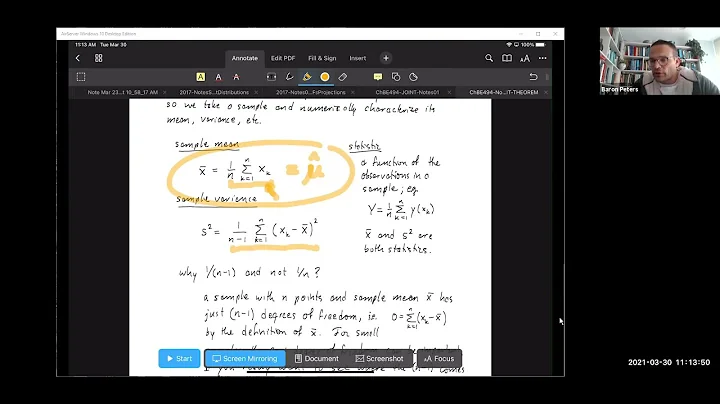 AirServer Windows 10 Desktop Edition
11:13 AM Tue Mar 30
100%
Annotate Edit PDF Fill & Sign Insert
Note Mar 23...t 10_58_17 AM
2017-NotesS...tDistributions
2017-Notes0...FsProjections
ChBE494-JOINT-Notes01
ChBE494-No...IT-THEOREM
so we take a sample and numerically characterize its
mean, variance, etc.
sample mean
x̄ = 1/n Σ_{k=1}^{n} x_k = μ̂
sample variance
s² = 1/(n-1) Σ_{k=1}^{n} (x_k - x̄)²
statistic
a function of the
observations in a
sample; eg.
Y = 1/n Σ_{k=1}^{n} y(x_k)
x̄ and s² are
both statistics.
why 1/(n-1) and not 1/n?
a sample with n points and sample mean x̄ has
just (n-1) degrees of freedom, i.e. 0 = Σ_{k=1}^{n} (x_k - x̄)
by the definition of x̄. For small
Start Screen Mirroring Document Screenshot AA Focus
Baron Peters
2021-03-30 11:13:50